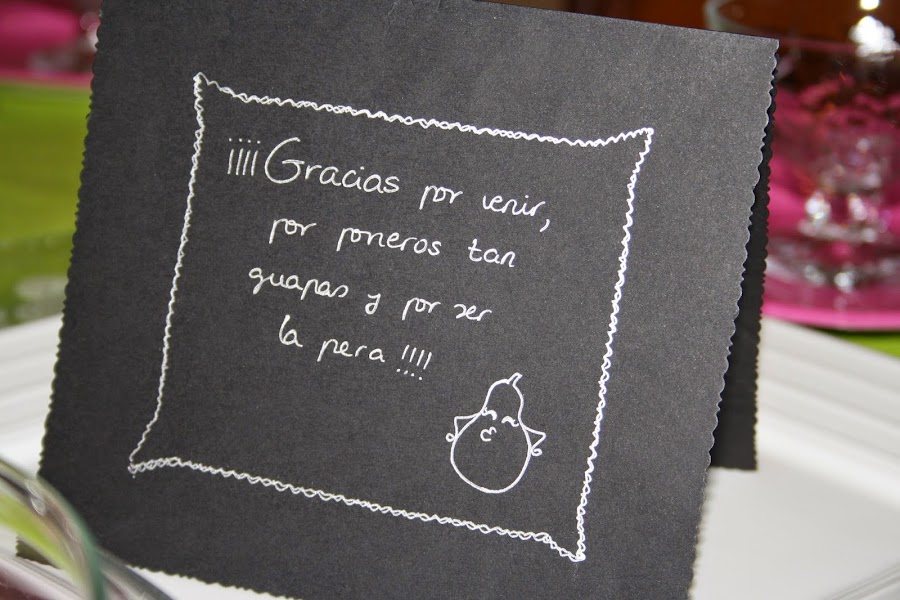 ¡¡¡¡Gracias por venir,
por poneros tan
guapas y por ser
la pera !!!!